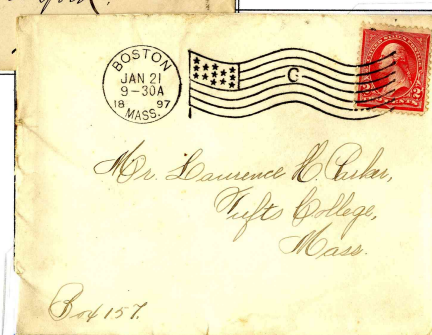 BOSTON
JAN 21
9-30A
18 97
MASS.
C
Mr. Laurence H. Parker,
Tufts College,
Mass.
Box 157.